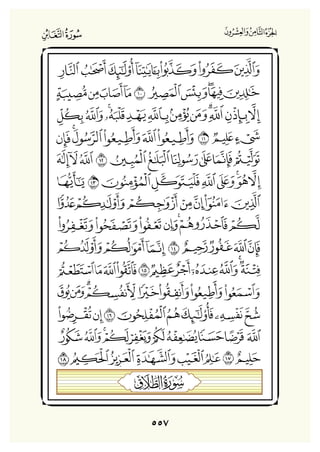 الجزء الثامن والعشرون
سورة التغابن
وَٱلَّذِينَ كَفَرُواْ وَكَذَّبُواْ بِـَٔايَٰتِنَآ أُوْلَٰٓئِكَ أَصْحَٰبُ ٱلنَّارِ
خَٰلِدِينَ فِيهَاۖ وَبِئْسَ ٱلْمَصِيرُ ١٠ مَآ أَصَابَ مِن مُّصِيبَةٍ
إِلَّا بِإِذْنِ ٱللَّهِۗ وَمَن يُؤْمِنۢ بِٱللَّهِ يَهْدِ قَلْبَهُۥۚ وَٱللَّهُ بِكُلِّ
شَىْءٍ عَلِيمٌ ١١ وَأَطِيعُواْ ٱللَّهَ وَأَطِيعُواْ ٱلرَّسُولَۚ فَإِن
تَوَلَّيْتُمْ فَإِنَّمَا عَلَىٰ رَسُولِنَا ٱلْبَلَٰغُ ٱلْمُبِينُ ١٢ ٱللَّهُ لَآ إِلَٰهَ
إِلَّا هُوَۚ وَعَلَى ٱللَّهِ فَلْيَتَوَكَّلِ ٱلْمُؤْمِنُونَ ١٣ يَٰٓأَيُّهَا
ٱلَّذِينَ ءَامَنُوٓاْ إِنَّ مِنْ أَزْوَٰجِكُمْ وَأَوْلَٰدِكُمْ عَدُوًّا
لَّكُمْ فَٱحْذَرُوهُمْۚ وَإِن تَعْفُواْ وَتَصْفَحُواْ وَتَغْفِرُواْ
فَإِنَّ ٱللَّهَ غَفُورٌ رَّحِيمٌ ١٤ إِنَّمَآ أَمْوَٰلُكُمْ وَأَوْلَٰدُكُمْ
فِتْنَةٌۚ وَٱللَّهُ عِندَهُۥٓ أَجْرٌ عَظِيمٌ ١٥ فَٱتَّقُواْ ٱللَّهَ مَا ٱسْتَطَعْتُمْ
وَٱسْمَعُواْ وَأَطِيعُواْ وَأَنفِقُواْ خَيْرًا لِّأَنفُسِكُمْۗ وَمَن يُوقَ
شُحَّ نَفْسِهِۦ فَأُوْلَٰٓئِكَ هُمُ ٱلْمُفْلِحُونَ ١٦ إِن تُقْرِضُواْ
ٱللَّهَ قَرْضًا حَسَنًا يُضَٰعِفْهُ لَكُمْ وَيَغْفِرْ لَكُمْۚ وَٱللَّهُ شَكُورٌ
حَلِيمٌ ١٧ عَٰلِمُ ٱلْغَيْبِ وَٱلشَّهَٰدَةِ ٱلْعَزِيزُ ٱلْحَكِيمُ ١٨
سورة الطلاق
٥٥٧